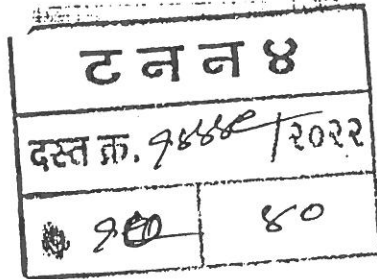 ट न न ४
दस्त क्र. १४४४९/२०२२
४०